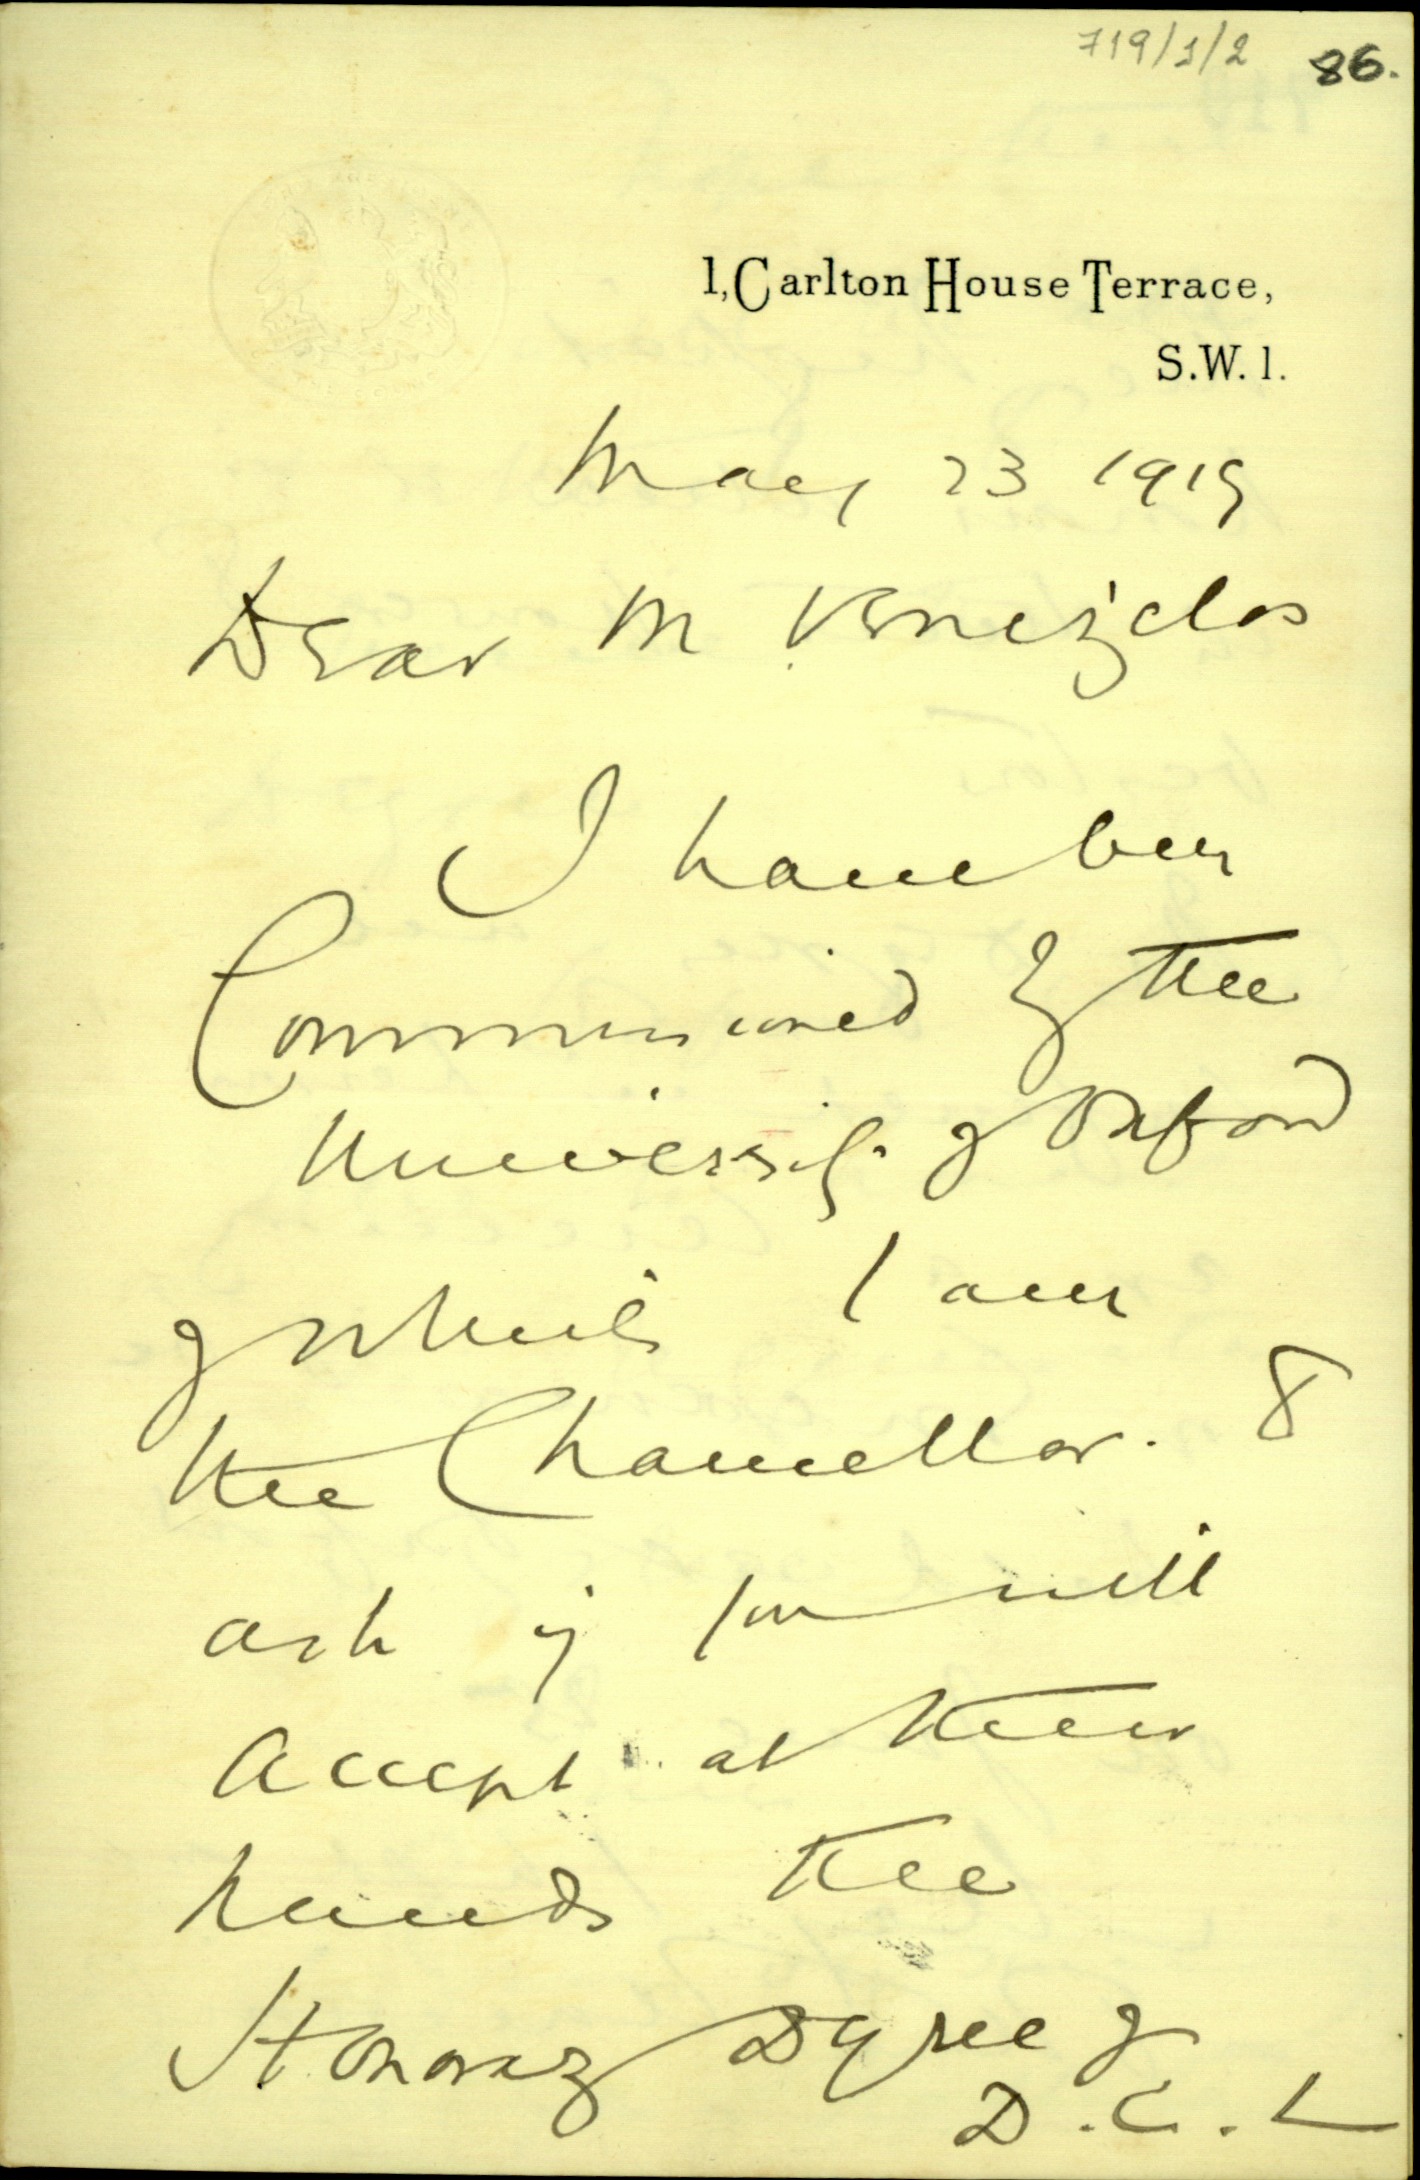 719/1/2 86.
1, Carlton House Terrace,
S.W. 1.
May 23 1919
Dear M Venizelos
I have been
Commissioned by the
University of Oxford
of which I am
the Chancellor. to
ask if you will
accept at their
hands the
Honorary Degree of
D.C.L